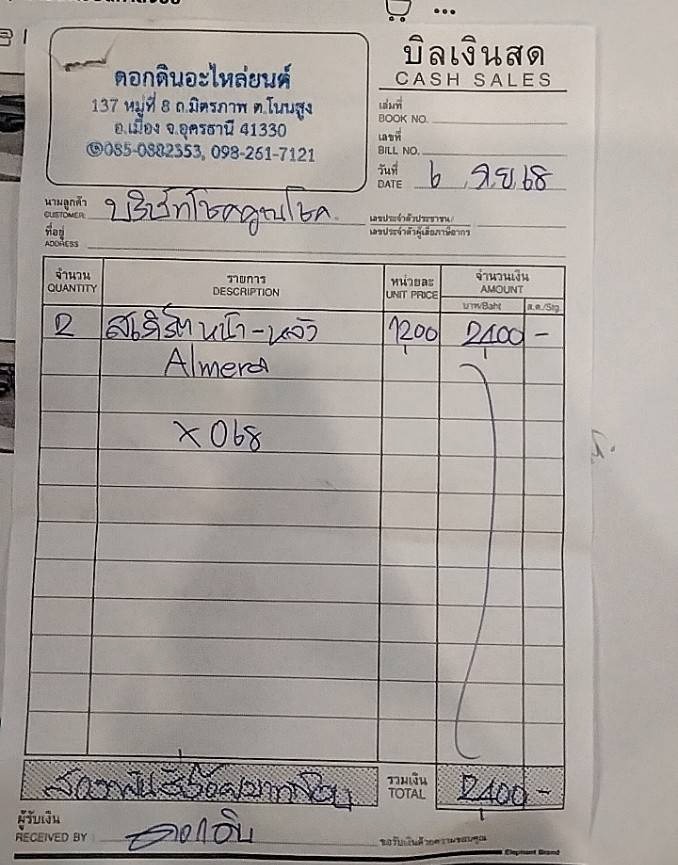 บิลเงินสด
CASH SALES
ดอกดินอะไหล่ยนต์
137 หมู่ที่ 8 ถ.มิตรภาพ ต.โนนสูง
อ.เมือง จ.อุดรธานี 41330
085-0882353, 098-261-7121
เล่มที่
BOOK NO.
เลขที่
BILL NO.
วันที่
DATE 6 ก.ย. 68
นามลูกค้า
CUSTOMER บริษัทโชคคูณโชค
เลขประจำตัวประชาชน/
เลขประจำตัวผู้เสียภาษีอากร
ที่อยู่
ADDRESS
จำนวน รายการ หน่วยละ จำนวนเงิน
QUANTITY DESCRIPTION UNIT PRICE AMOUNT
บาท/Baht ส.ต./Stg.
2 สเกิร์ต หน้า-หลัง 1200 2400 -
Almera
x 068
สองพันสี่ร้อยบาทถ้วน รวมเงิน
TOTAL 2400 -
ผู้รับเงิน
RECEIVED BY ดอกดิน
ขอรับเงินด้วยความขอบคุณ
Elephant Brand